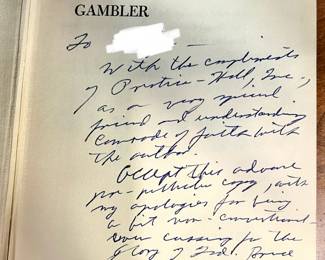 GAMBLER
To
With the compliments
of Prentice-Hall, Inc.,
as a very special
friend and understanding
comrade of faith with
the author.
Accept this advance
pre-publication copy, with
my apologies for being
a bit non-conventional-
even cussing for the
glory of God. Bruce